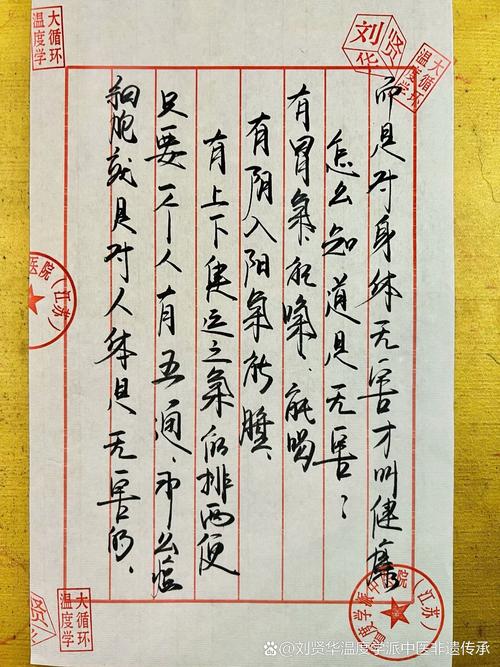 而是对身体无害才叫健康
怎么知道是无害？
有胃氣、能喫、能喝
有阴入阳氣能睡、
有上下健运之氣能排两便
只要一个人有五通、那么癌
细胞就是对人体是无害的、
大循环
温度学
刘贤华
大循环
温度学
医院（江苏）
大循环
温度学
贤
医院（江苏）
@刘贤华温度学派中医非遗传承